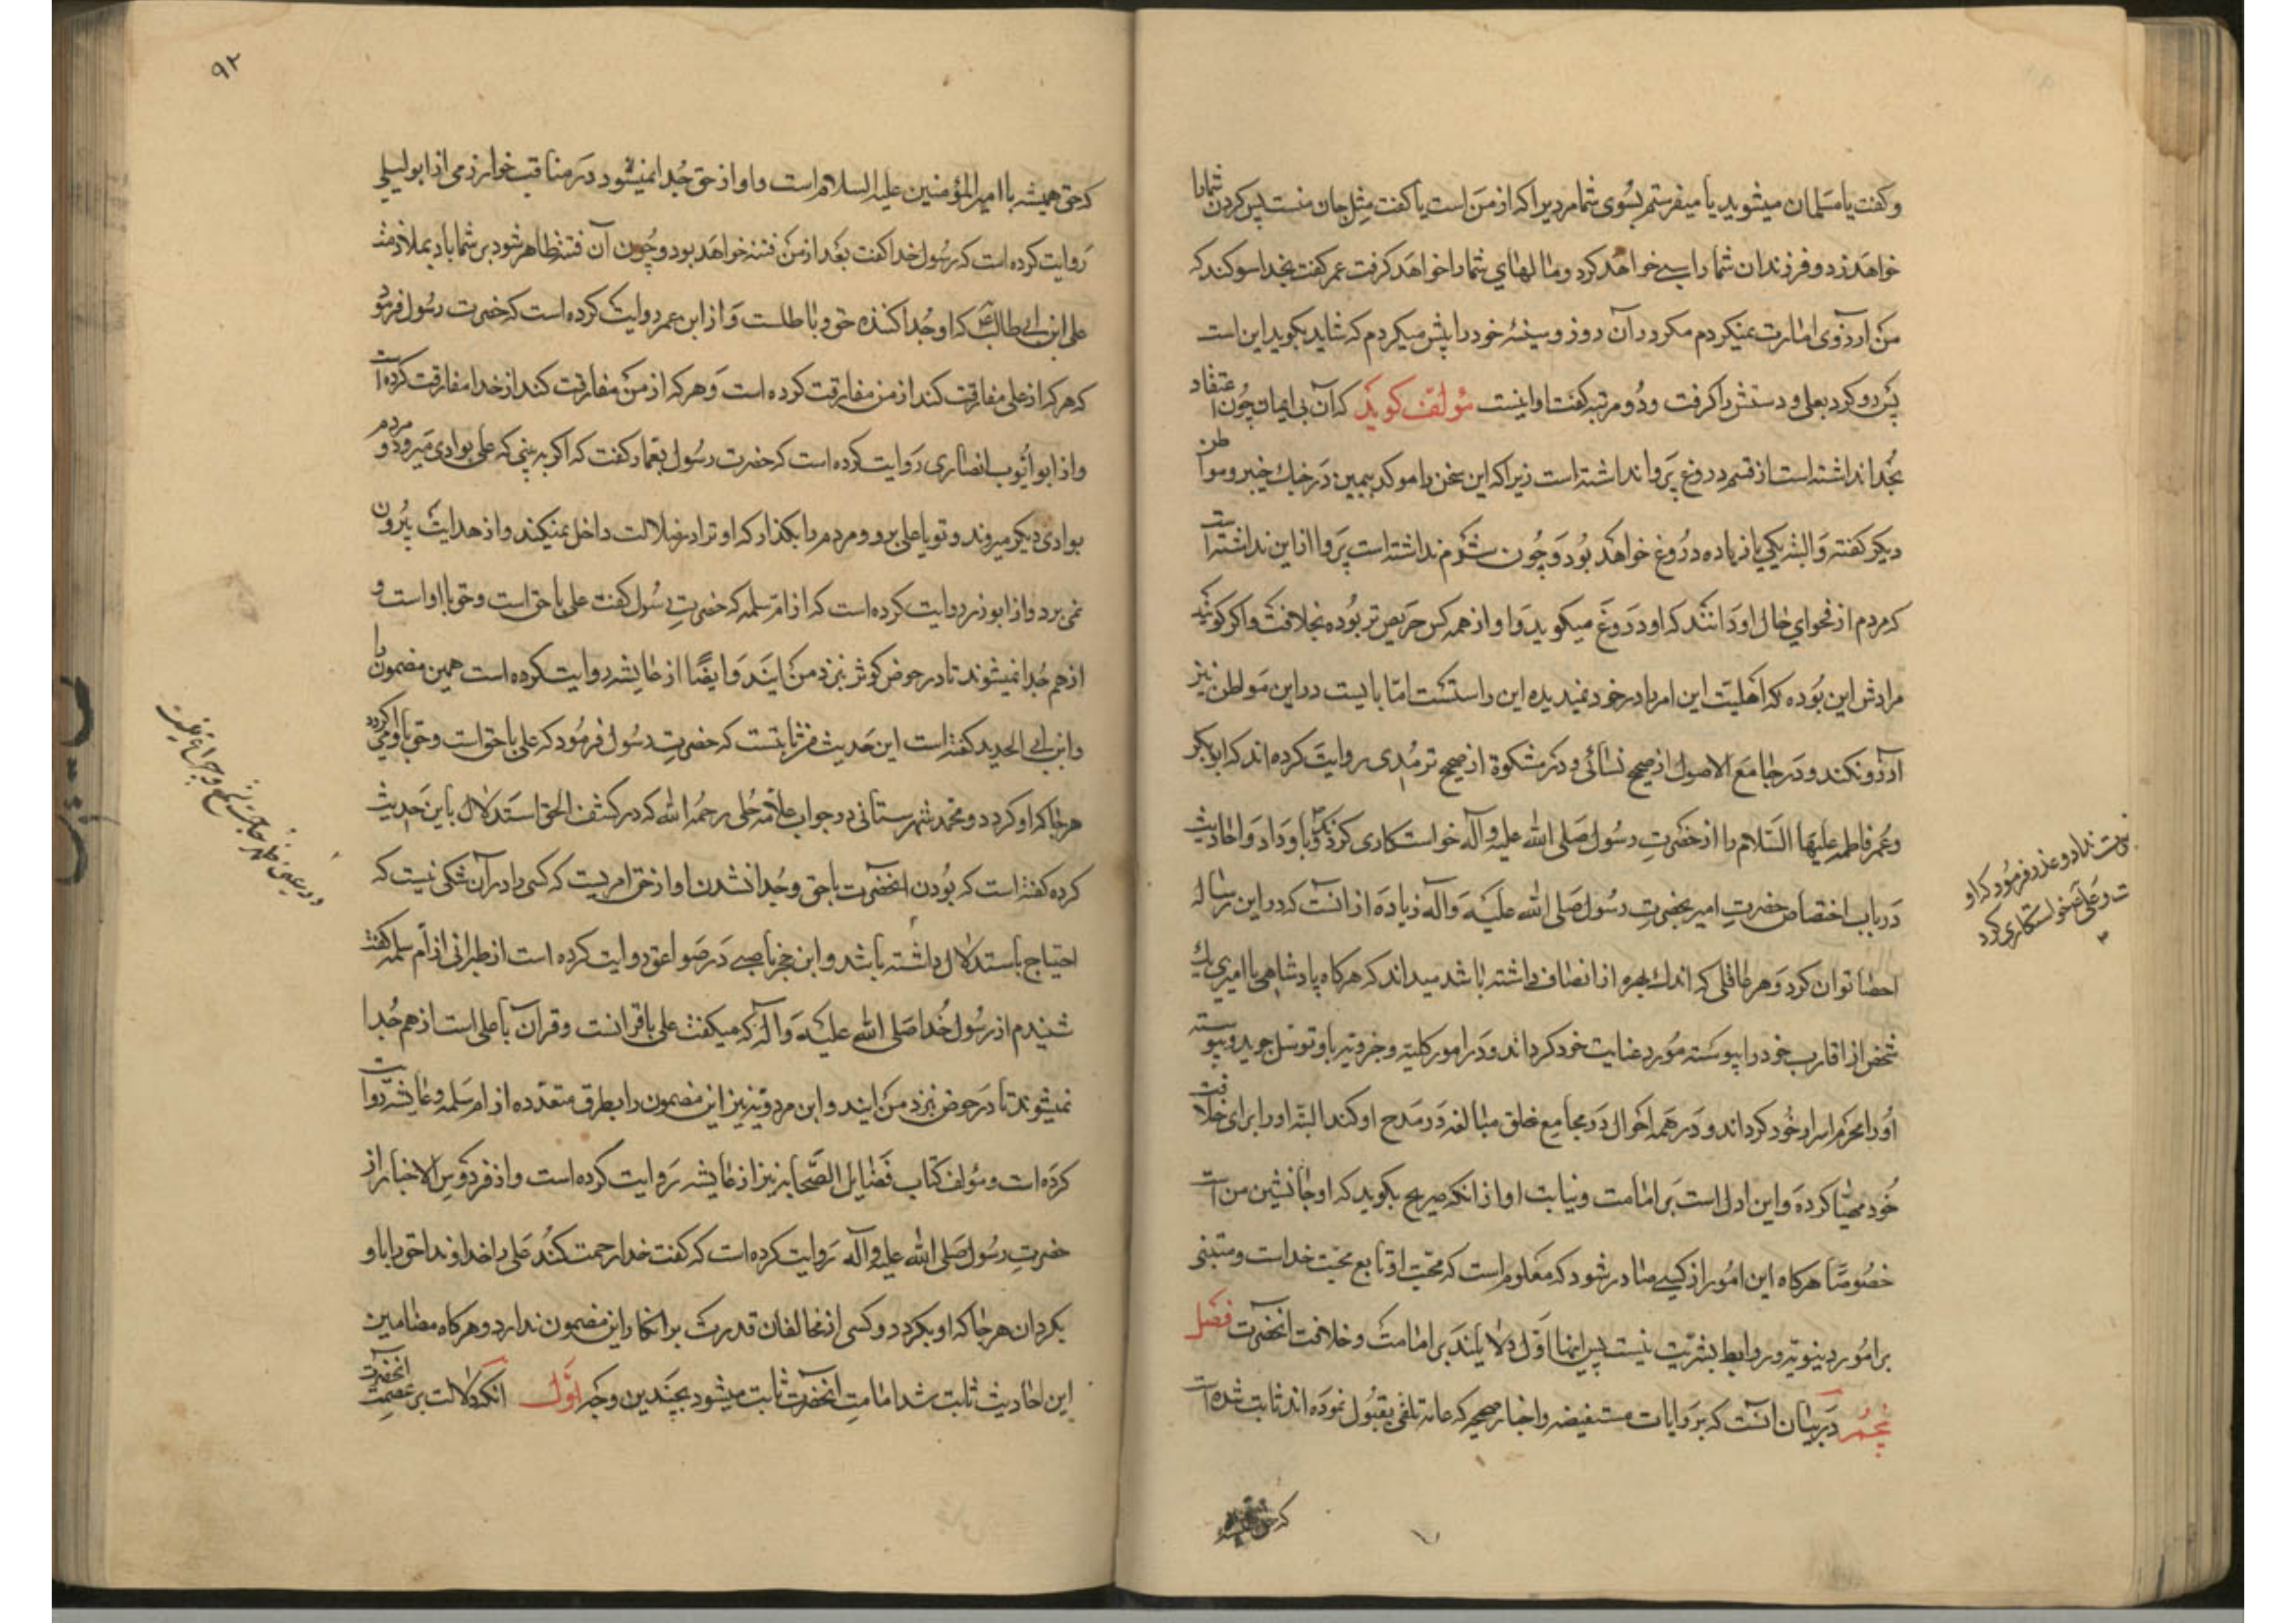 وکفت یا مسلمان میشوید یا میفرستم بسوی شما مردیرا که از من است یا کفت مثل جان منست پس کردن شما را
خواهد زد و فرزندان شما را سبی خواهد کرد و مالهای شما را خواهد کرفت عمر کفت بخدا سوکند که
من آرزوی امارت نمیکردم مکر در آن روز و سینهٔ خود را پیش میکردم که شاید بکوید این است
پس رو کرد بعلی و دستش را کرفت و دو مرتبه کفت او اینست مؤلف کوید که آن بی ایمان چون اعتقاد
بخدا نداشته است از قسم دروغ پروا نداشته است زیرا که این سخن را موکد بیمین در جنك خیبر و مواطن
دیکر کفته و البته یکی یا زیاده دروغ خواهد بود و چون شرم نداشته است پروا از این نداشته است
که مردم از فحوای حال او دانند که او دروغ میکوید و او از همه کس حریص تر بوده بخلافت و اکر کویند
مرادش این بوده که اهلیت این امر را در خود نمیدیده این راستست اما بایست در این مواطن نیز
آرزو نکند و در جامع الاصول از صحیح نسائی و در مشکوة از صحیح ترمدی روایت کرده اند که ابوبکر
و عمر فاطمه علیها السلام را از حضرت رسول صلی الله علیه و آله خواستکاری کردند و باو داد و احادیث
در باب اختصاص حضرت امیر بحضرت رسول صلی الله علیه و آله زیاده از آنست که در این رساله
احصا توان کرد و هر عاقلی که اندك بهره از انصاف داشته باشد میداند که هرکاه پادشاهی یا امیری یك
شخص از اقارب خود را پیوسته مورد عنایت خود کرداند و در امور کلیه و جزویه باو توسل جوید و پیوسته
او را محرم اسرار خود کرداند و در همه احوال در مجامع خلق مبالغه در مدح او کند البته او را برای خلافت
خود مهیا کرده و این ادل است بر امامت و نیابت او از آنکه صریح بکوید که او جانشین من است
خصوصا هرکاه این امور از کسی صادر شود که معلوم است که محبت او تابع محبت خداست و مبتنی
بر امور دینویه و روابط بشریت نیست پس اینها اول دلایلند بر امامت و خلافت آنحضرت فصل
پنجم در بیان آنست که بروایات مستفیضه و اخبار صحیحه که عامه تلقی بقبول نموده اند ثابت شده است
نداد و عذر فرمود که او
و علی خواستکاری کرد
٩٢
که حق همیشه با امیر المؤمنین علیه السلام است و او از حق جدا نمیشود در مناقب خوارزمی از ابو لیلی
روایت کرده است که رسول خدا کفت بعد از من فتنه خواهد بود و چون آن فتنه ظاهر شود بر شما باد بملازمت
علی ابن ابی طالب ع که او جدا کننده حق و باطلست و از ابن عمر روایت کرده است که حضرت رسول فرمود
که هر که از علی مفارقت کند از من مفارقت کرده است و هر که از من مفارقت کند از خدا مفارقت کرده است
و از ابو ایوب انصاری روایت کرده است که حضرت رسول بعمار کفت که اکر به بینی که علی بوادی میرود و مردم
بوادی دیکر میروند و تو با علی برو و مردم را بکذار که او ترا در ضلالت داخل نمیکند و از هدایت بیرون
نمی برد و از ابوذر روایت کرده است که از ام سلمه که حضرت رسول کفت علی با حق است و حق با او است و
از هم جدا نمیشوند تا در حوض کوثر بنزد من ایند و ایضا از عایشه روایت کرده است همین مضمون را
و ابن ابی الحدید کفته است این حدیث نزد ثابتست که حضرت رسول فرمود که علی با حق است و حق با او میکردد
هر جا که او کردد و محمد شهرستانی در جواب علامه حلی رحمه الله که در کشف الحق استدلال باین حدیث
کرده کفته است که بودن آنحضرت با حق و جدا نشدن او از حق امریست که کسی را در آن شکی نیست که
احتیاج باستدلال داشته باشد و ابن حجر ناصبی در صواعق روایت کرده است از طبرانی از ام سلمه کفت
شنیدم از رسول خدا صلی الله علیه و آله که میکفت علی با قرانست و قرآن با علی است از هم جدا
نمیشوند تا در حوض نزد من ایند و ابن مردویه نیز این مضمون را بطرق متعدده از ام سلمه و عایشه روایت
کرده است و مؤلف کتاب فضایل الصحابه نیز از عایشه روایت کرده است و از فردوس الاخبار از
حضرت رسول صلی الله علیه و آله روایت کرده است که کفت خدا رحمت کند علی را خداوندا حق را با او
بکردان هر جا که او بکردد و کسی از مخالفان قدرت بر انکار این مضمون ندارد و هرکاه مضامین
این احادیث ثابت شد امامت آنحضرت ثابت میشود بچندین وجه اول آنکه دلالت بر عصمت آنحضرت